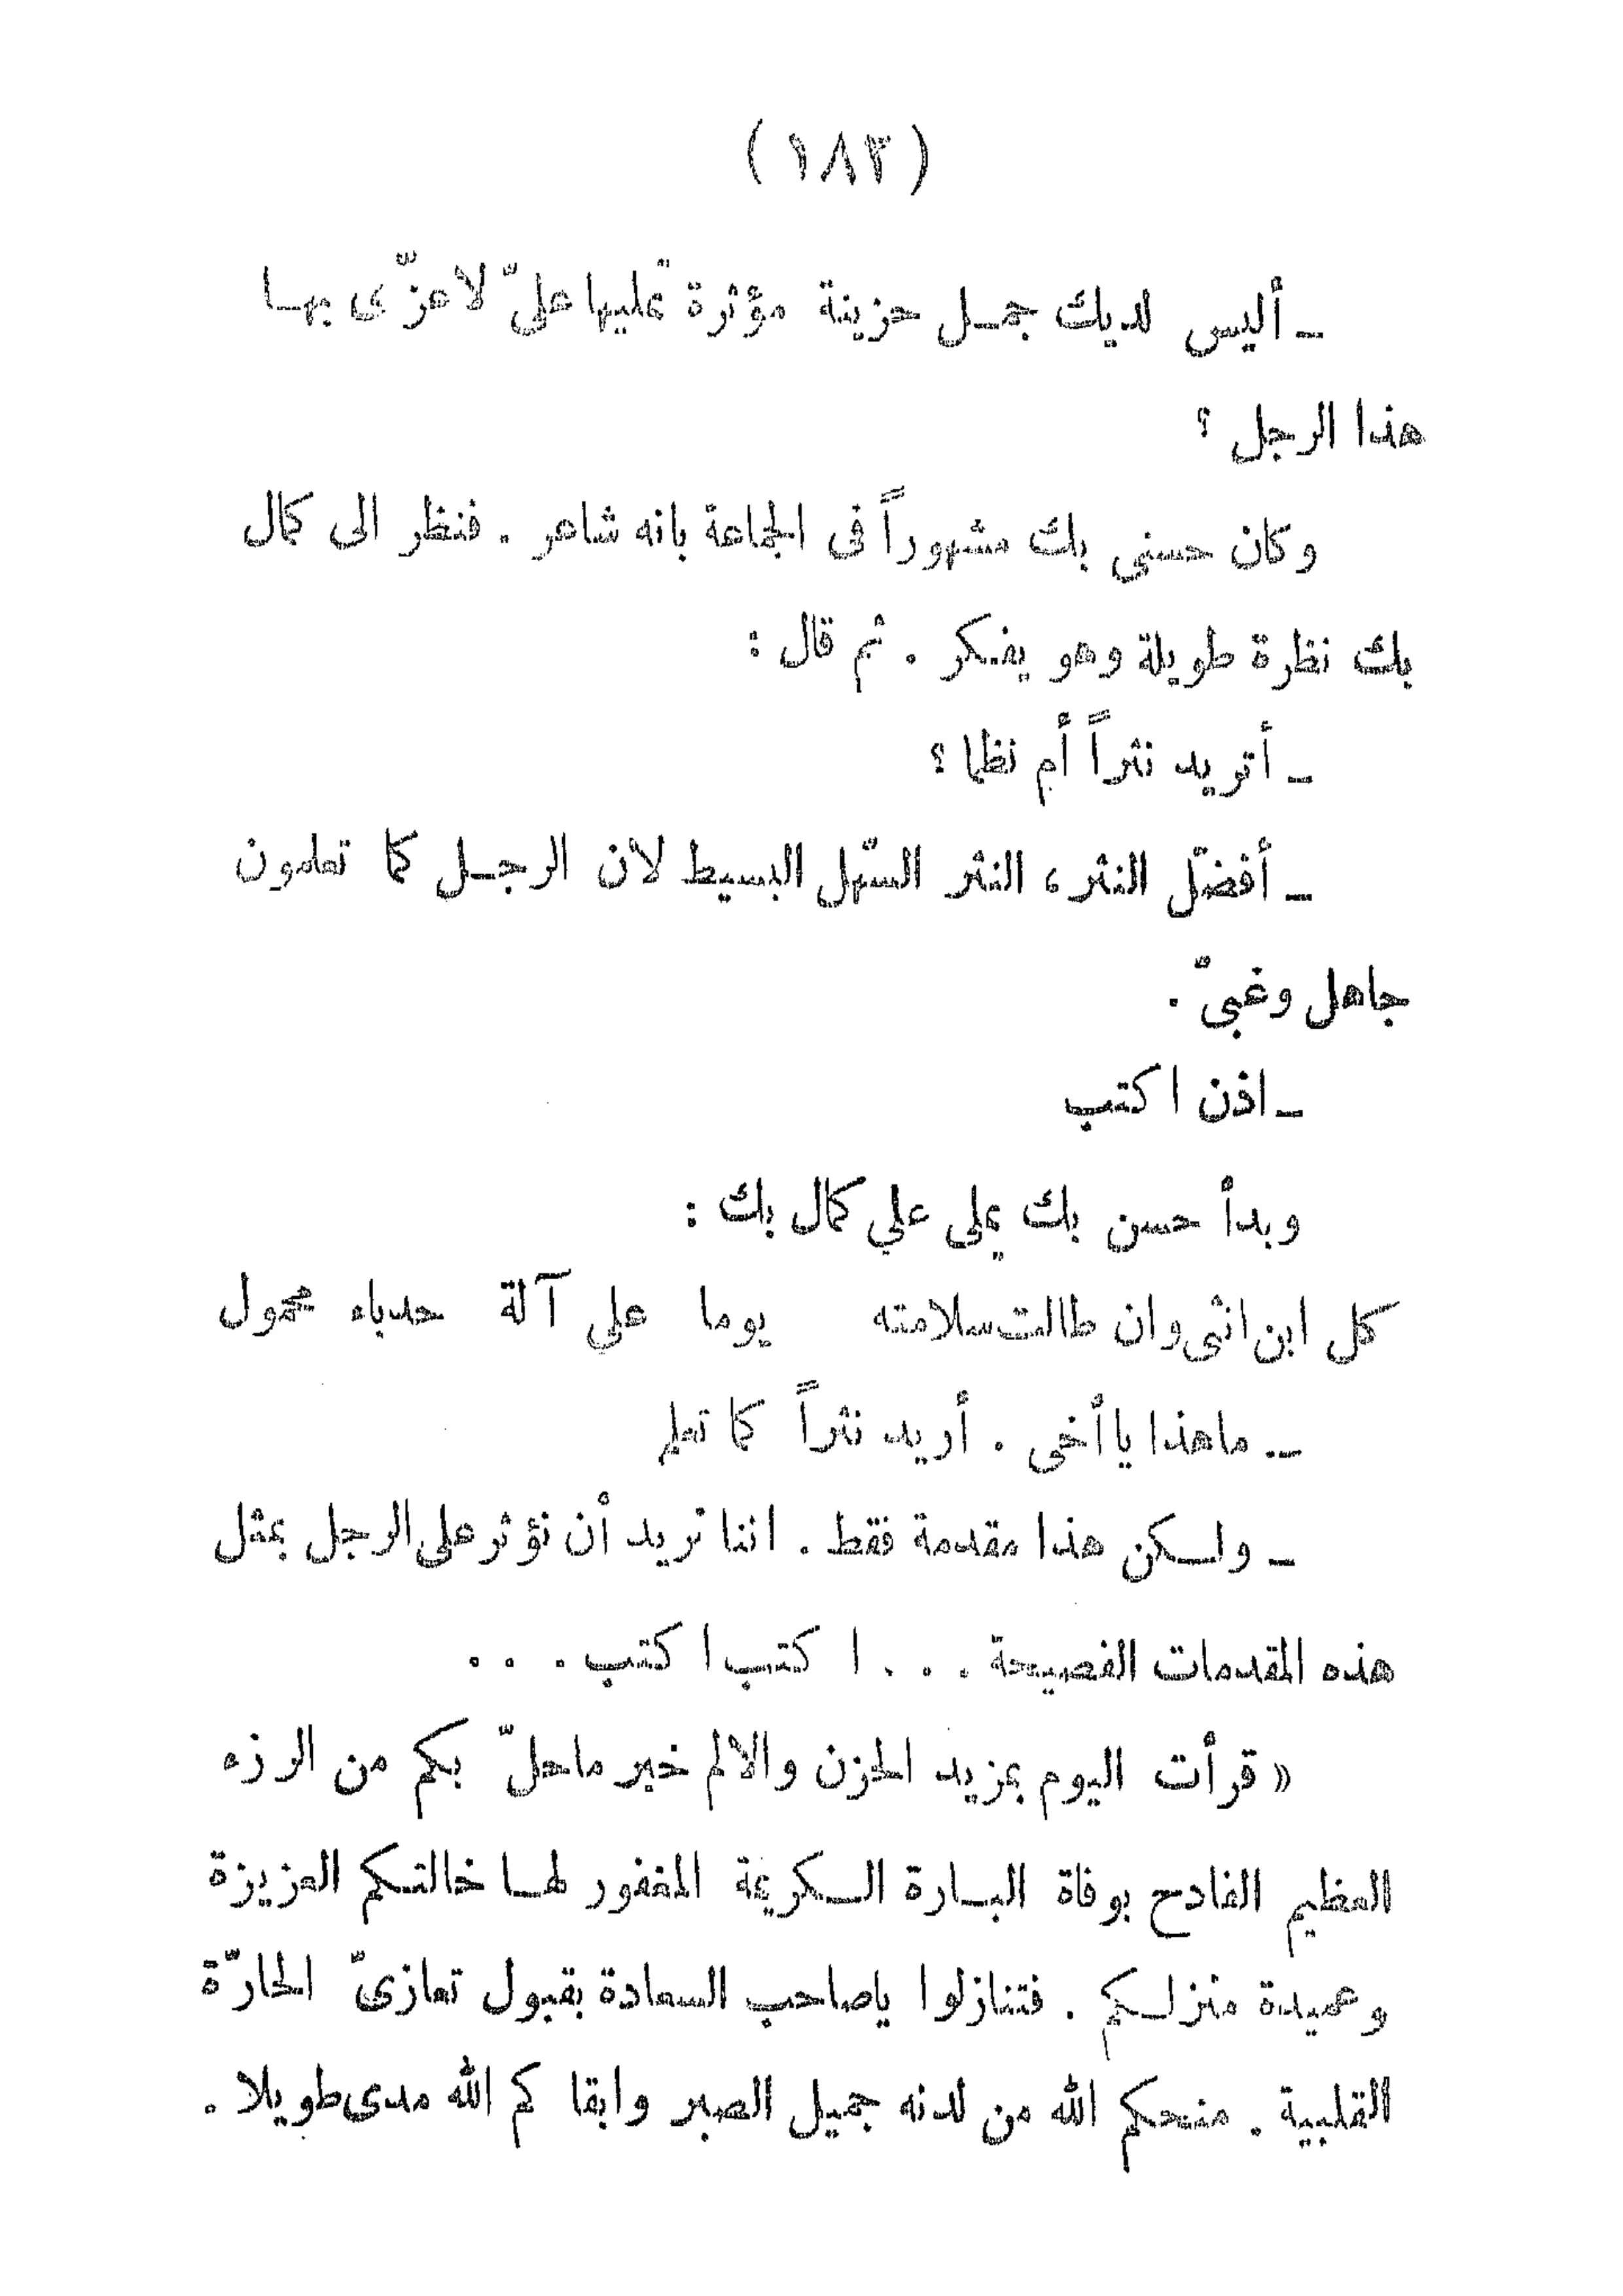 (١٨٣)
ـ أليس لديك جمـل حزينة مؤثرة تمليها علىّ لاعزّى بهـا
هذا الرجل ؟
وكان حسنى بك مشهوراً فى الجماعة بانه شاعر . فنظر الى كمال
بك نظرة طويلة وهو يفـكر . ثم قال :
ـ أتريد نثراً أم نظما ؟
ـ أفضّل النثر ، النثر السّهل البسيط لان الرجـل كما تعلمون
جاهل وغبىّ .
ـ اذن اكتب
وبدأ حسن بك يملى علي كمال بك :
كل ابن انثى وان طالت سلامته يوما علي آلة حدباء محمول
ـ ماهذا ياأخى . أريد نثراً كما تعلم
ـ ولـكن هذا مقدمة فقط . اننا نريد أن نؤثر على الرجل بمثل
هذه المقدمات الفصيحة . . . اكتب اكتب . . .
« قرأت اليوم بمزيد الحزن والالم خبر ماحلّ بكم من الرزء
العظيم الفادح بوفاة البـارة الـكريمة المغفور لهـا خالتـكم العزيزة
وعميدة منزلـكم . فتنازلوا ياصاحب السعادة بقبول تعازىّ الحارّة
القلبية . منحكم الله من لدنه جميل الصبر وابقاكم الله مدى طويلا .